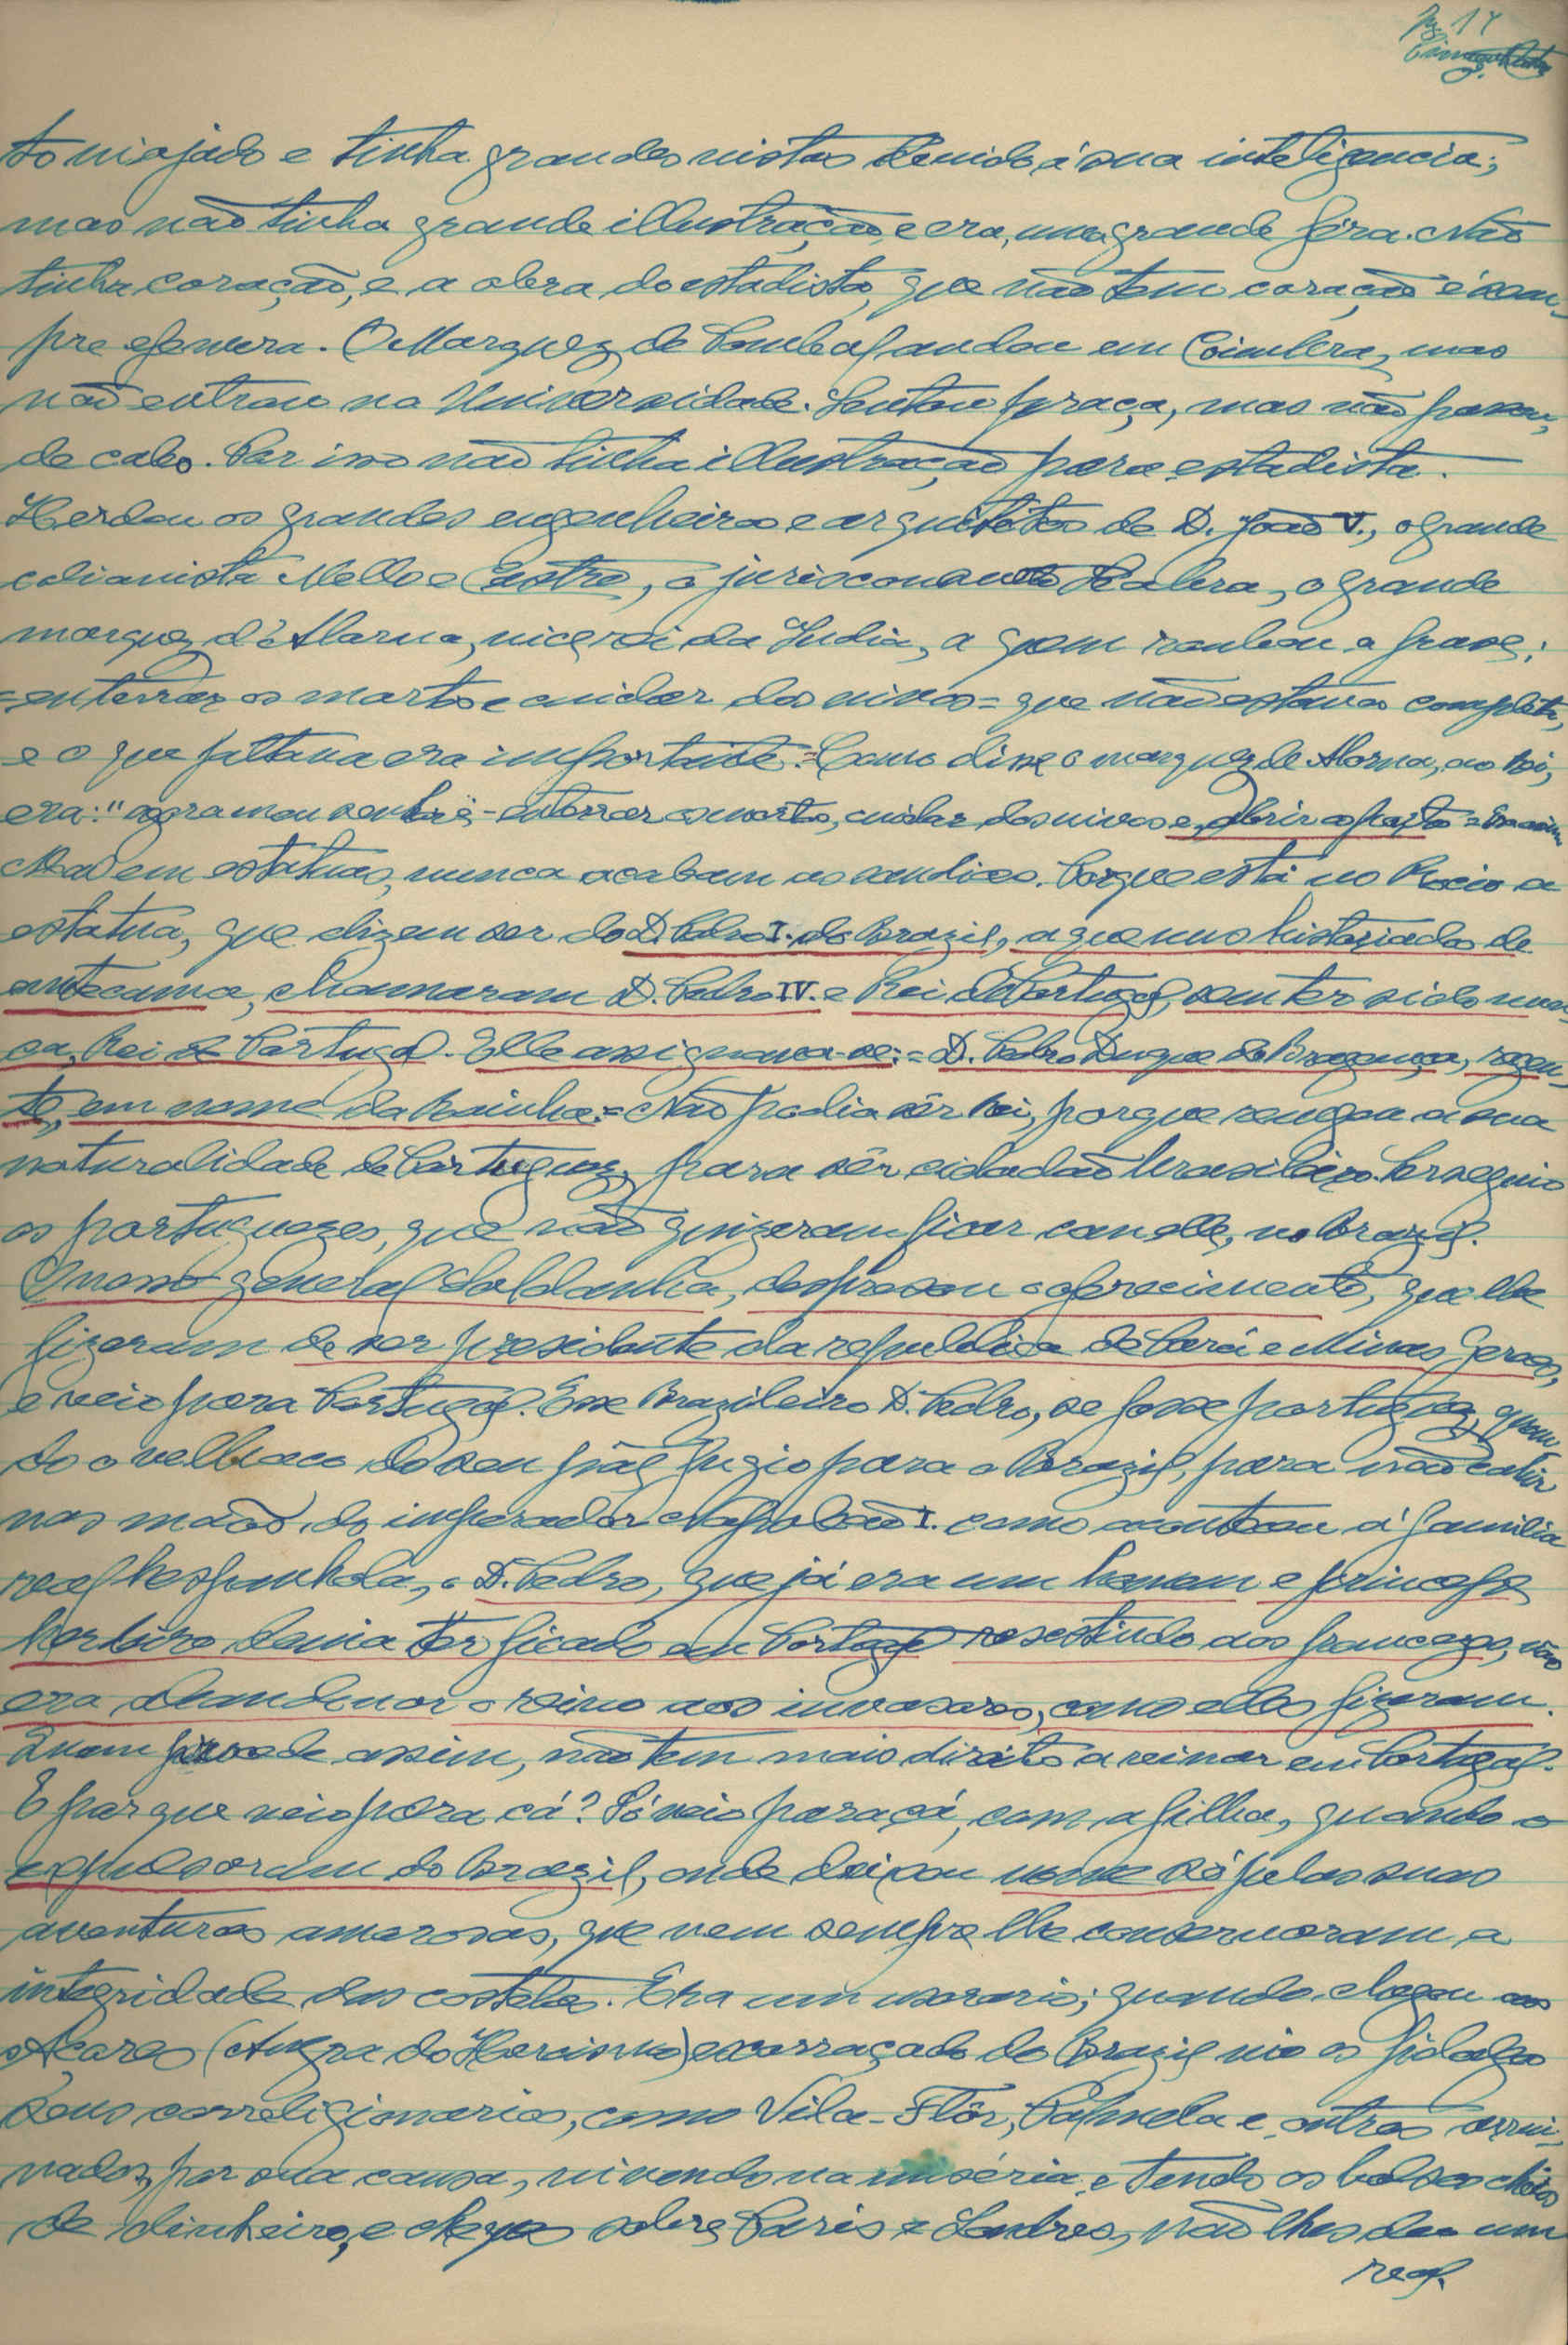 Pg. 17
to viajado e tinha grandes vistas devido á sua inteligencia;
mas não tinha grande illustração, e era, uma grande féra. Não
tinha coração, e a obra do estadista, que não tem coração é sem-
pre efemera. O Marquez de Pombal andou em Coimbra, mas
não entrou na Universidade. Sentou praça, mas não passou,
de cabo. Por isso não tinha illustração para estadista.
Herdou os grandes engenheiros e arquitétos de D. João V., o grande
Mello e Castro, o jurisconsulto Seabra, o grande
marquez d'Alorna, vice rei da India, a quem roubou a frase;
=enterrar os mortos e cuidar dos vivos= que não estava completa,
e o que faltava era importante.= Como disse o marquez de Alorna, ao Rei,
era: "agora meu senhor, - enterrar os mortos, cuidar dos vivos e, abrir os portos =
em estatuas, nunca acabam as. Porque está no Rocio a
estatua, que dizem ser do D. Pedro I. do Brazil, a que uns historiados de
antecama, chamaram D. Pedro IV. e Rei de Portugal, sem ter sido nun-
ca, Rei de Portugal. Elle assignava-se: = D. Pedro Duque de Bragança, regen-
te, em nome da Rainha.= Não podia sêr Rei, porque renegou a sua
naturalidade de Portuguez, para sêr cidadão brasileiro. Perseguio
os portuguezes, que não quizeram ficar com elle, no Brazil.
O nosso general Saldanha, despresou o oferecimento, que lhe
fizeram de ser presidente da republica do Pará e Minas Geraes,
e veio para Portugal. Esse Brazileiro D. Pedro, se fosse portuguez, quan-
do o velhaco do seu pae fugio para o Brazil, para não cahir
nas mãos, do imperador Napoleão I. como aconteceu á familia
real hespanhola, o D. Pedro, que já era um homem e principe
herdeiro devia ter ficado em Portugal resestindo aos francezes, não
era abandonar o reino aos invasores, como elles fizeram.
Quem procede assim, não tem mais direito a reinar em Portugal.
E por que veio para cá? Só veio para cá, com a filha, quando o
expulsaram do Brazil, onde deixou nome só pelas suas
aventuras amorosas, que nem sempre lhe conservaram a
integridade das costelas. Era um usurario; quando chegou aos
Açores (Angra do Heroismo) escorraçado do Brazil viu os fidalgos
seus correligionarios, como Vila-Flôr, Palmela e, outros arrui-
nados, por sua causa, vivendo na miséria, e tendo os bolsos cheios
de dinheiro, e cheques sobre Paris e Londres, não lhes deu um
real.